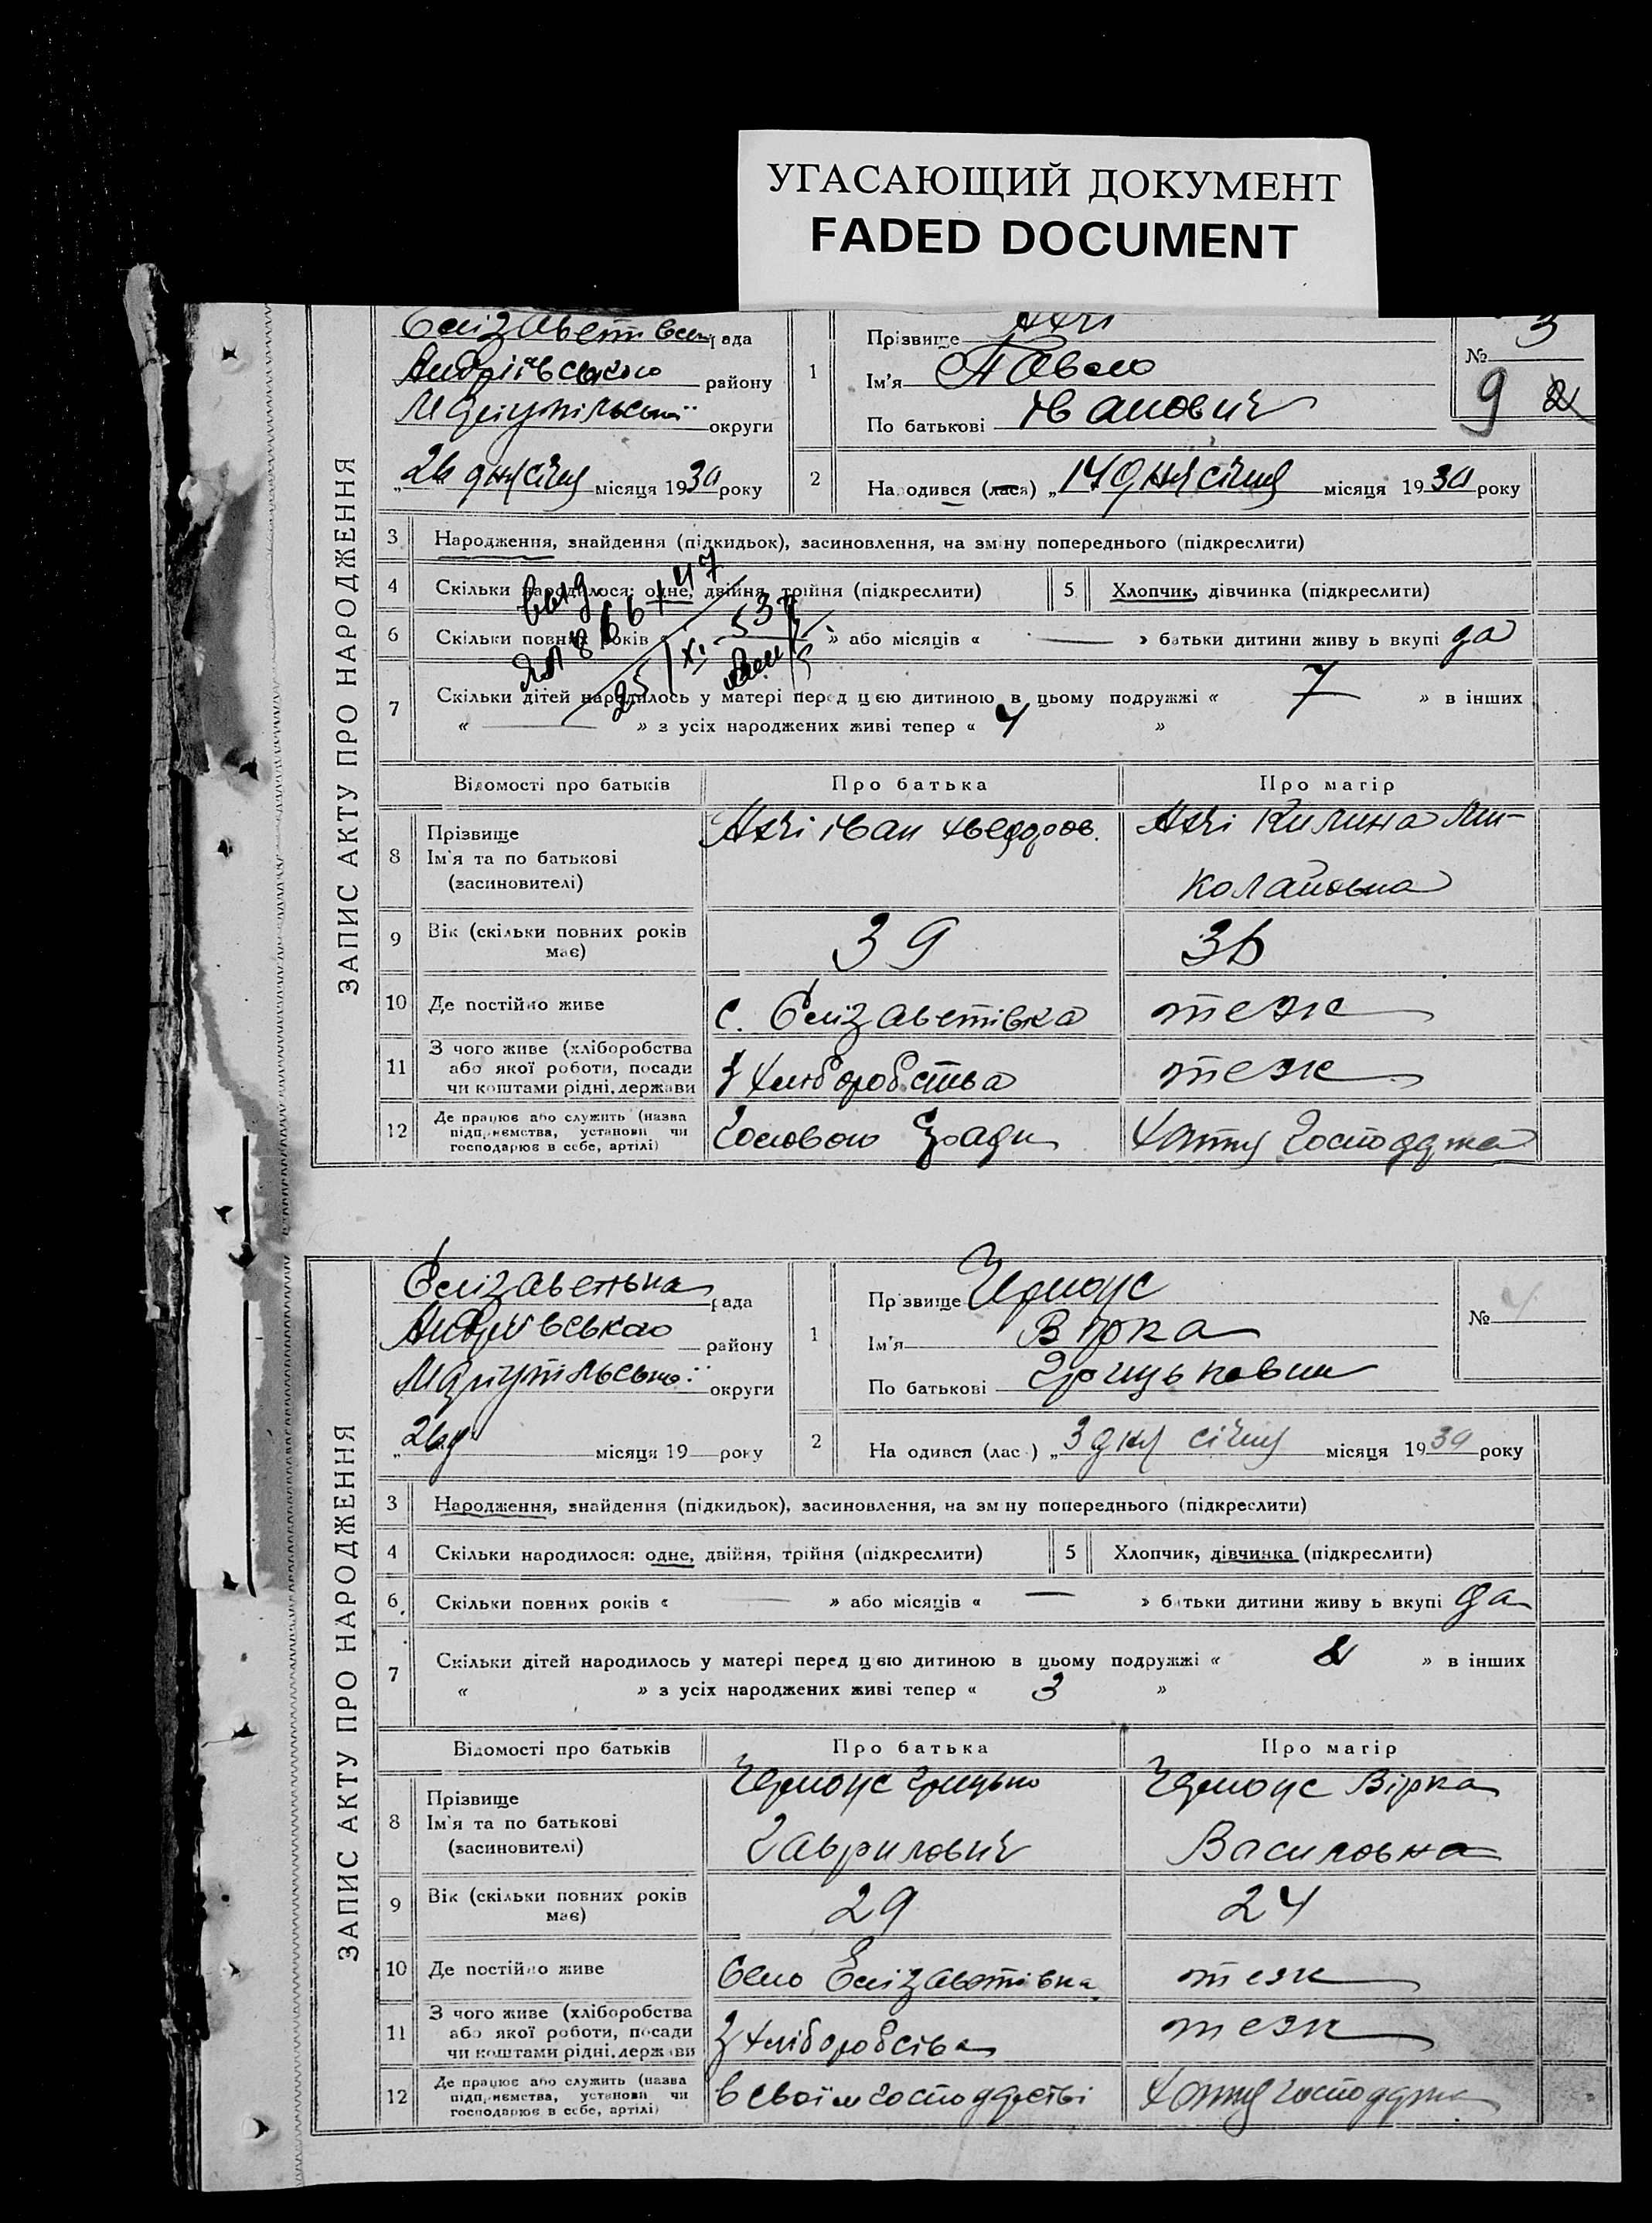 УГАСАЮЩИЙ ДОКУМЕНТ
FADED DOCUMENT
ЗАПИС АКТУ ПРО НАРОДЖЕННЯ
рада
Андріївського району
Маріупільської округи
„26 дня січня місяця 1930 року
1
Прізвище Ахчі
Ім'я Павло
По батькові Іванович
№ 3
9
2 Народився (лася) „14 дня січня місяця 1930 року
3 Народження, знайдення (підкидьок), засиновлення, на зміну попереднього (підкреслити)
4 Скільки народилося: одне, двійня, трійня (підкреслити)
5 Хлопчик, дівчинка (підкреслити)
6 Скільки повних років « » або місяців « — » батьки дитини живуть вкупі да
7 Скільки дітей народилось у матері перед цією дитиною в цьому подружжі « 7 » в інших
« — » з усіх народжених живі тепер « 4 »
Відомості про батьків
Про батька
Про матір
8 Прізвище
Ім'я та по батькові
(засиновителі)
Ахчі Іван Хведоров.
Ахчі Килина Ми-
колаївна
9 Вік (скільки повних років
має)
39
36
10 Де постійно живе
с. Єлізаветівка
теж
11 З чого живе (хліборобства
або якої роботи, посади
чи коштами рідні, держави
З хліборобства
теж
12 Де працює або служить (назва
підприємства, установи чи
господарює в себе, артілі)
Головою
Хатня господжа
ЗАПИС АКТУ ПРО НАРОДЖЕННЯ
рада
району
Маріупільської округи
„26 д місяця 19 року
1
Прізвище Чорноус
Ім'я Вірка
По батькові Грицьковна
№ 4
2 Народився (лас ) „3 дня січня місяця 1930 року
3 Народження, знайдення (підкидьок), засиновлення, на зміну попереднього (підкреслити)
4 Скільки народилося: одне, двійня, трійня (підкреслити)
5 Хлопчик, дівчинка (підкреслити)
6 Скільки повних років « — » або місяців « — » батьки дитини живуть вкупі да
7 Скільки дітей народилось у матері перед цією дитиною в цьому подружжі « 2 » в інших
« » з усіх народжених живі тепер « 3 »
Відомості про батьків
Про батька
Про матір
8 Прізвище
Ім'я та по батькові
(засиновителі)
Чорноус Грицько
Гаврилович
Чорноус Вірка
Василовна
9 Вік (скільки повних років
має)
29
24
10 Де постійно живе
Село Єлізаветівка
теж
11 З чого живе (хліборобства
або якої роботи, посади
чи коштами рідні, держави
З хліборобства
теж
12 Де працює або служить (назва
підприємства, установи чи
господарює в себе, артілі)
в своїм господарстві
Хатня господжа